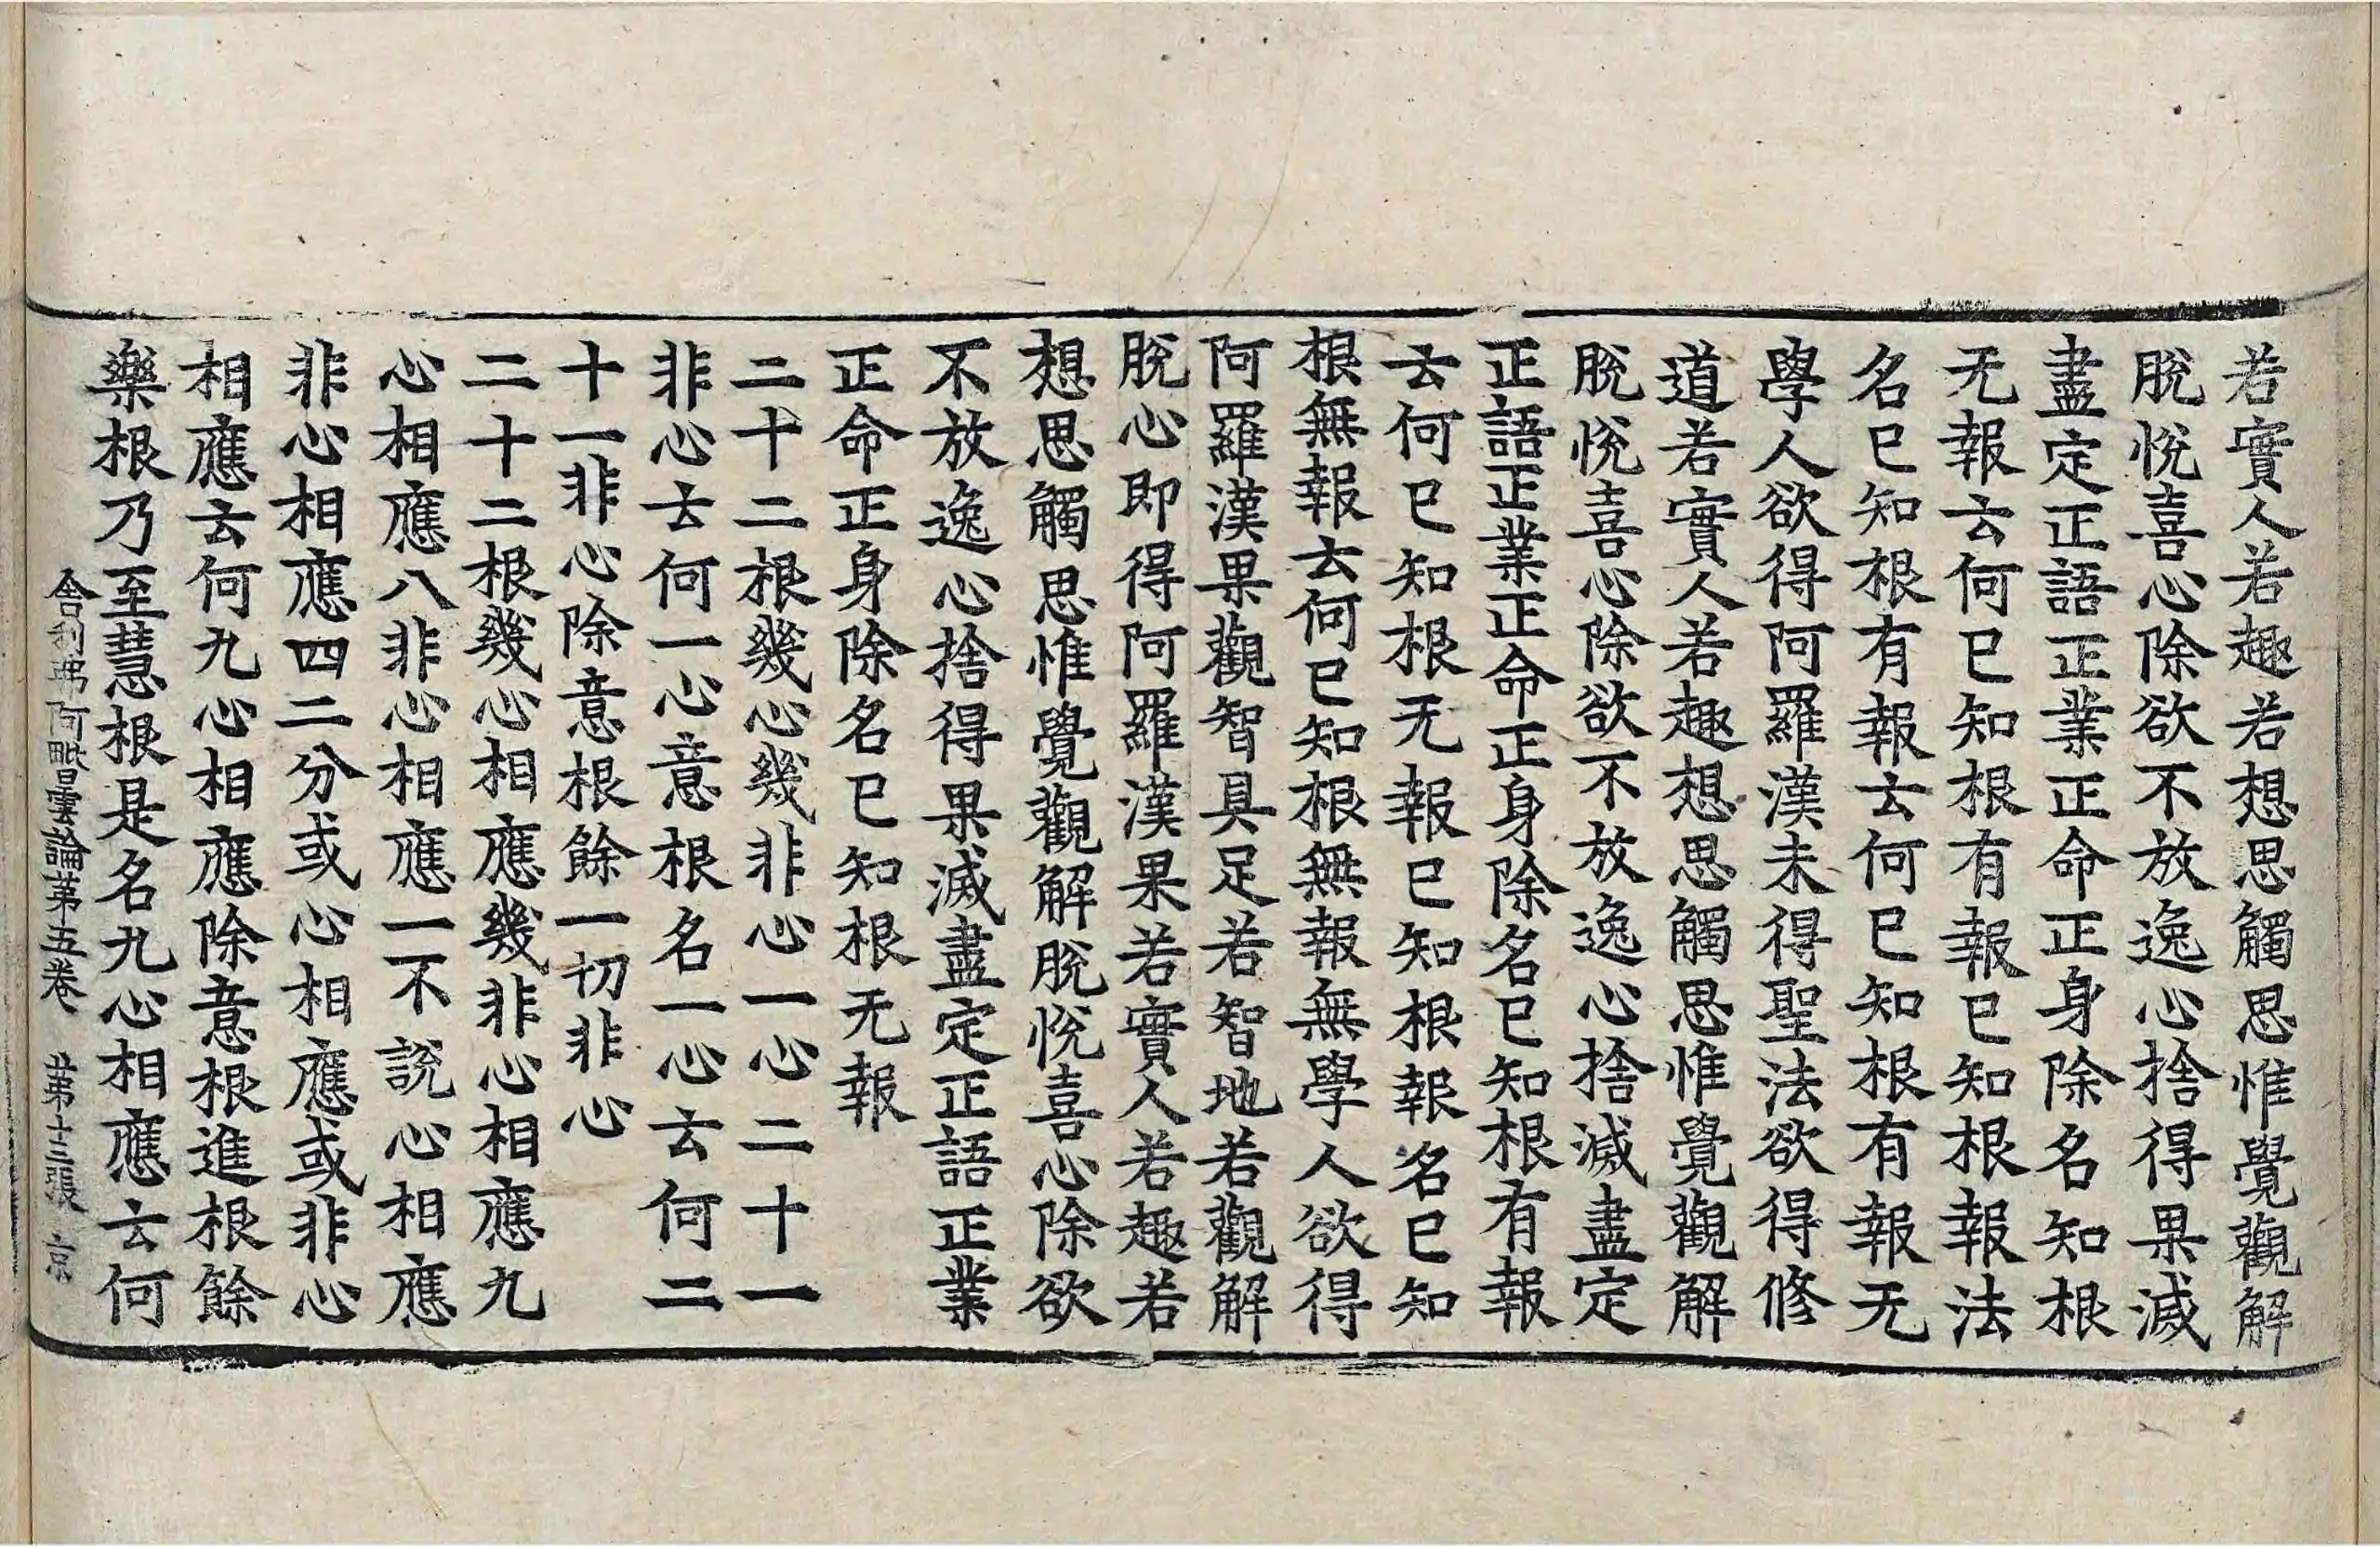 若實人若趣若想思觸思惟覺觀解
脫悅喜心除欲不放逸心捨得果滅
盡定正語正業正命正身除名知根
无報云何已知根有報已知根報法
名已知根有報云何已知根有報无
學人欲得阿羅漢未得聖法欲得修
道若實人若趣想思觸思惟覺觀解
脫悅喜心除欲不放逸心捨滅盡定
正語正業正命正身除名已知根有報
云何已知根无報已知根報名已知
根無報云何已知根無報無學人欲得
阿羅漢果觀智具足若智地若觀解
脫心即得阿羅漢果若實人若趣若
想思觸思惟覺觀解脫悅喜心除欲
不放逸心捨得果滅盡定正語正業
正命正身除名已知根无報
二十二根幾心幾非心一心二十一
非心云何一心意根名一心云何二
十一非心除意根餘一切非心
二十二根幾心相應幾非心相應九
心相應八非心相應一不說心相應
非心相應四二分或心相應或非心
相應云何九心相應除意根進根餘
樂根乃至慧根是名九心相應云何
舍利弗阿毗曇論第五卷 第十三張 京